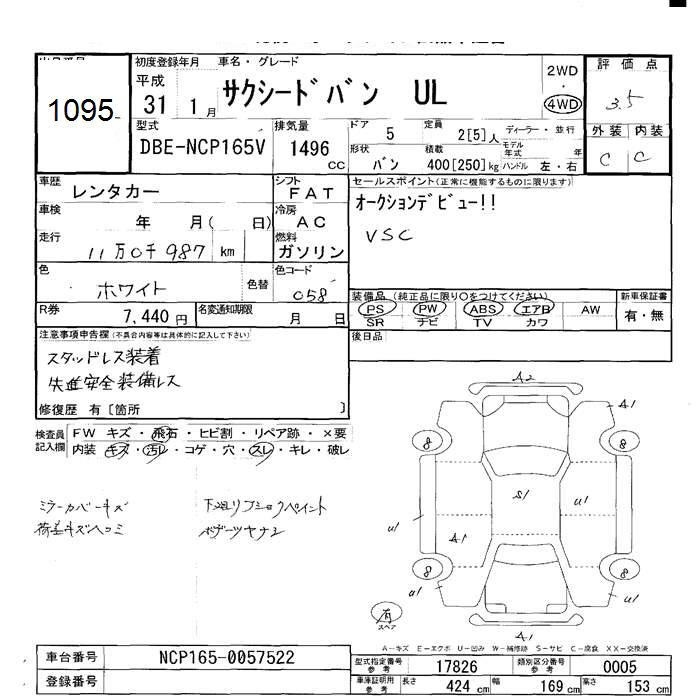 1095
初度登録年月 車名・グレード
平成 31 1月 サクシードバン UL
2WD ・ 4WD
評価点
3.5
外装 内装
C C
型式 排気量 ドア 定員 ディーラー・並行
DBE-NCP165V 1496 CC 5 2[5]人 モデル年式 年
形状 積載 ハンドル 左・右
バン 400[250]kg
車歴 レンタカー シフト FAT
セールスポイント(正常に機能するものに限ります)
車検 年 月( 日) 冷房 AC
オークションデビュー!!
走行 11万0千987 km 燃料 ガソリン
VSC
色 ホワイト 色替 色コード 058
装備品(純正品に限り○をつけてください) 新車保証書
PS PW ABS エアB AW 有・無
SR ナビ TV カワ
R券 7,440円 名変通知期限 月 日
後日品
注意事項申告欄(不具合内容等は具体的に記入して下さい)
スタッドレス装着
先進安全装備レス
修復歴 有[箇所 ]
検査員記入欄 FW キズ・飛石・ヒビ割・リペア跡・×要
内装 キズ・汚レ・コゲ・穴・スレ・キレ・破レ
ミラーカバーキズ
荷差キズヘコミ
A2
A1
8 8
S1
U1
U1
A1
8 8
U1 U1
有
スペア
A1
A-キズ E-エクボ U-凹み W-補修跡 S-サビ C-腐食 XX-交換済
車台番号 NCP165-0057522
登録番号
型式指定番号参考 17826 類別区分番号参考 0005
車庫証明用参考 長さ 424 cm 幅 169 cm 高さ 153 cm